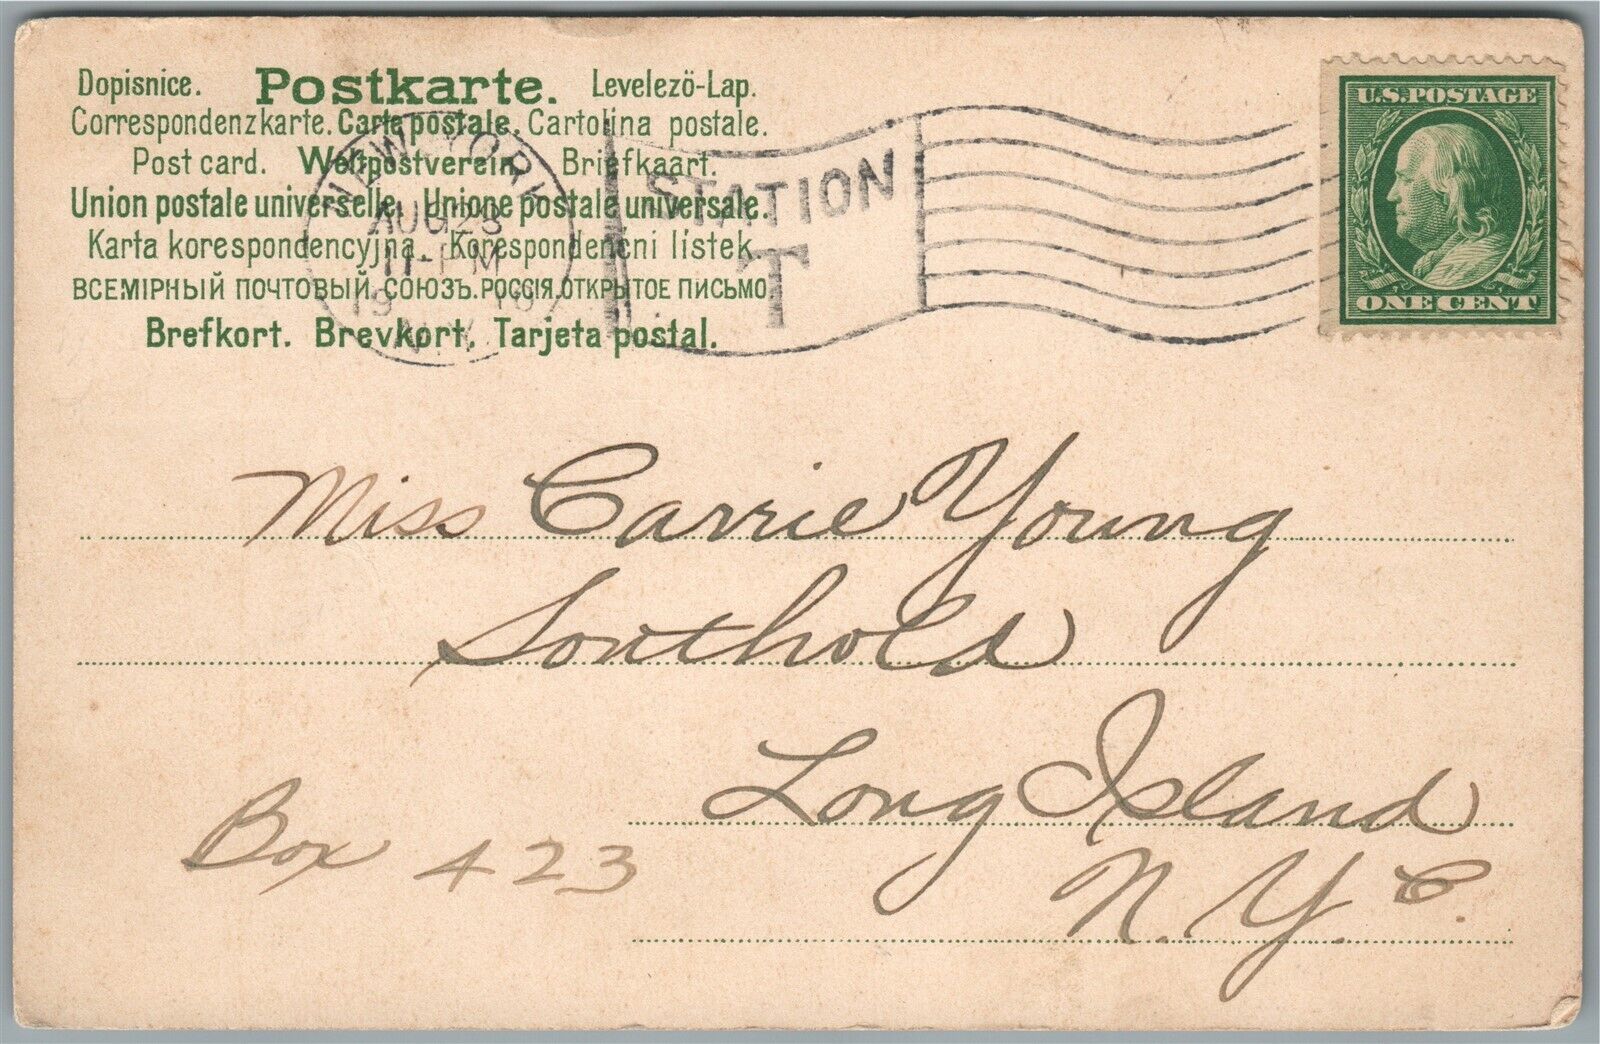 Dopisnice. Postkarte. Levelezö-Lap.
Correspondenzkarte. Carte postale. Cartolina postale.
Post card. Weltpostverein. Briefkaart.
Union postale universelle. Unione postale universale.
Karta korespondencyjna. Korespondencni lístek.
ВСЕМІРНЫЙ ПОЧТОВЫЙ СОЮЗЪ. РОССІЯ. ОТКРЫТОЕ ПИСЬМО.
Brefkort. Brevkort. Tarjeta postal.
NEW YORK
AUG 23
11-PM
19
N.Y.
STATION
T
U.S. POSTAGE
ONE CENT
Miss Carrie Young
Southold
Long Island
Box 423
N. Y. C.